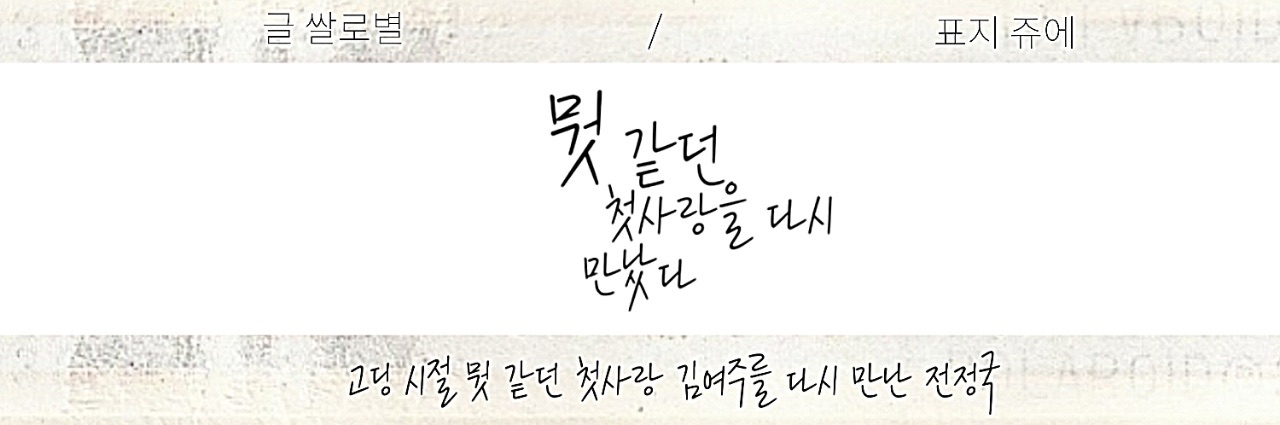 글 쌀로별 / 표지 쥬에
뭣 같던
첫사랑을 다시
만났다
고딩 시절 뭣 같던 첫사랑 김여주를 다시 만난 전정국